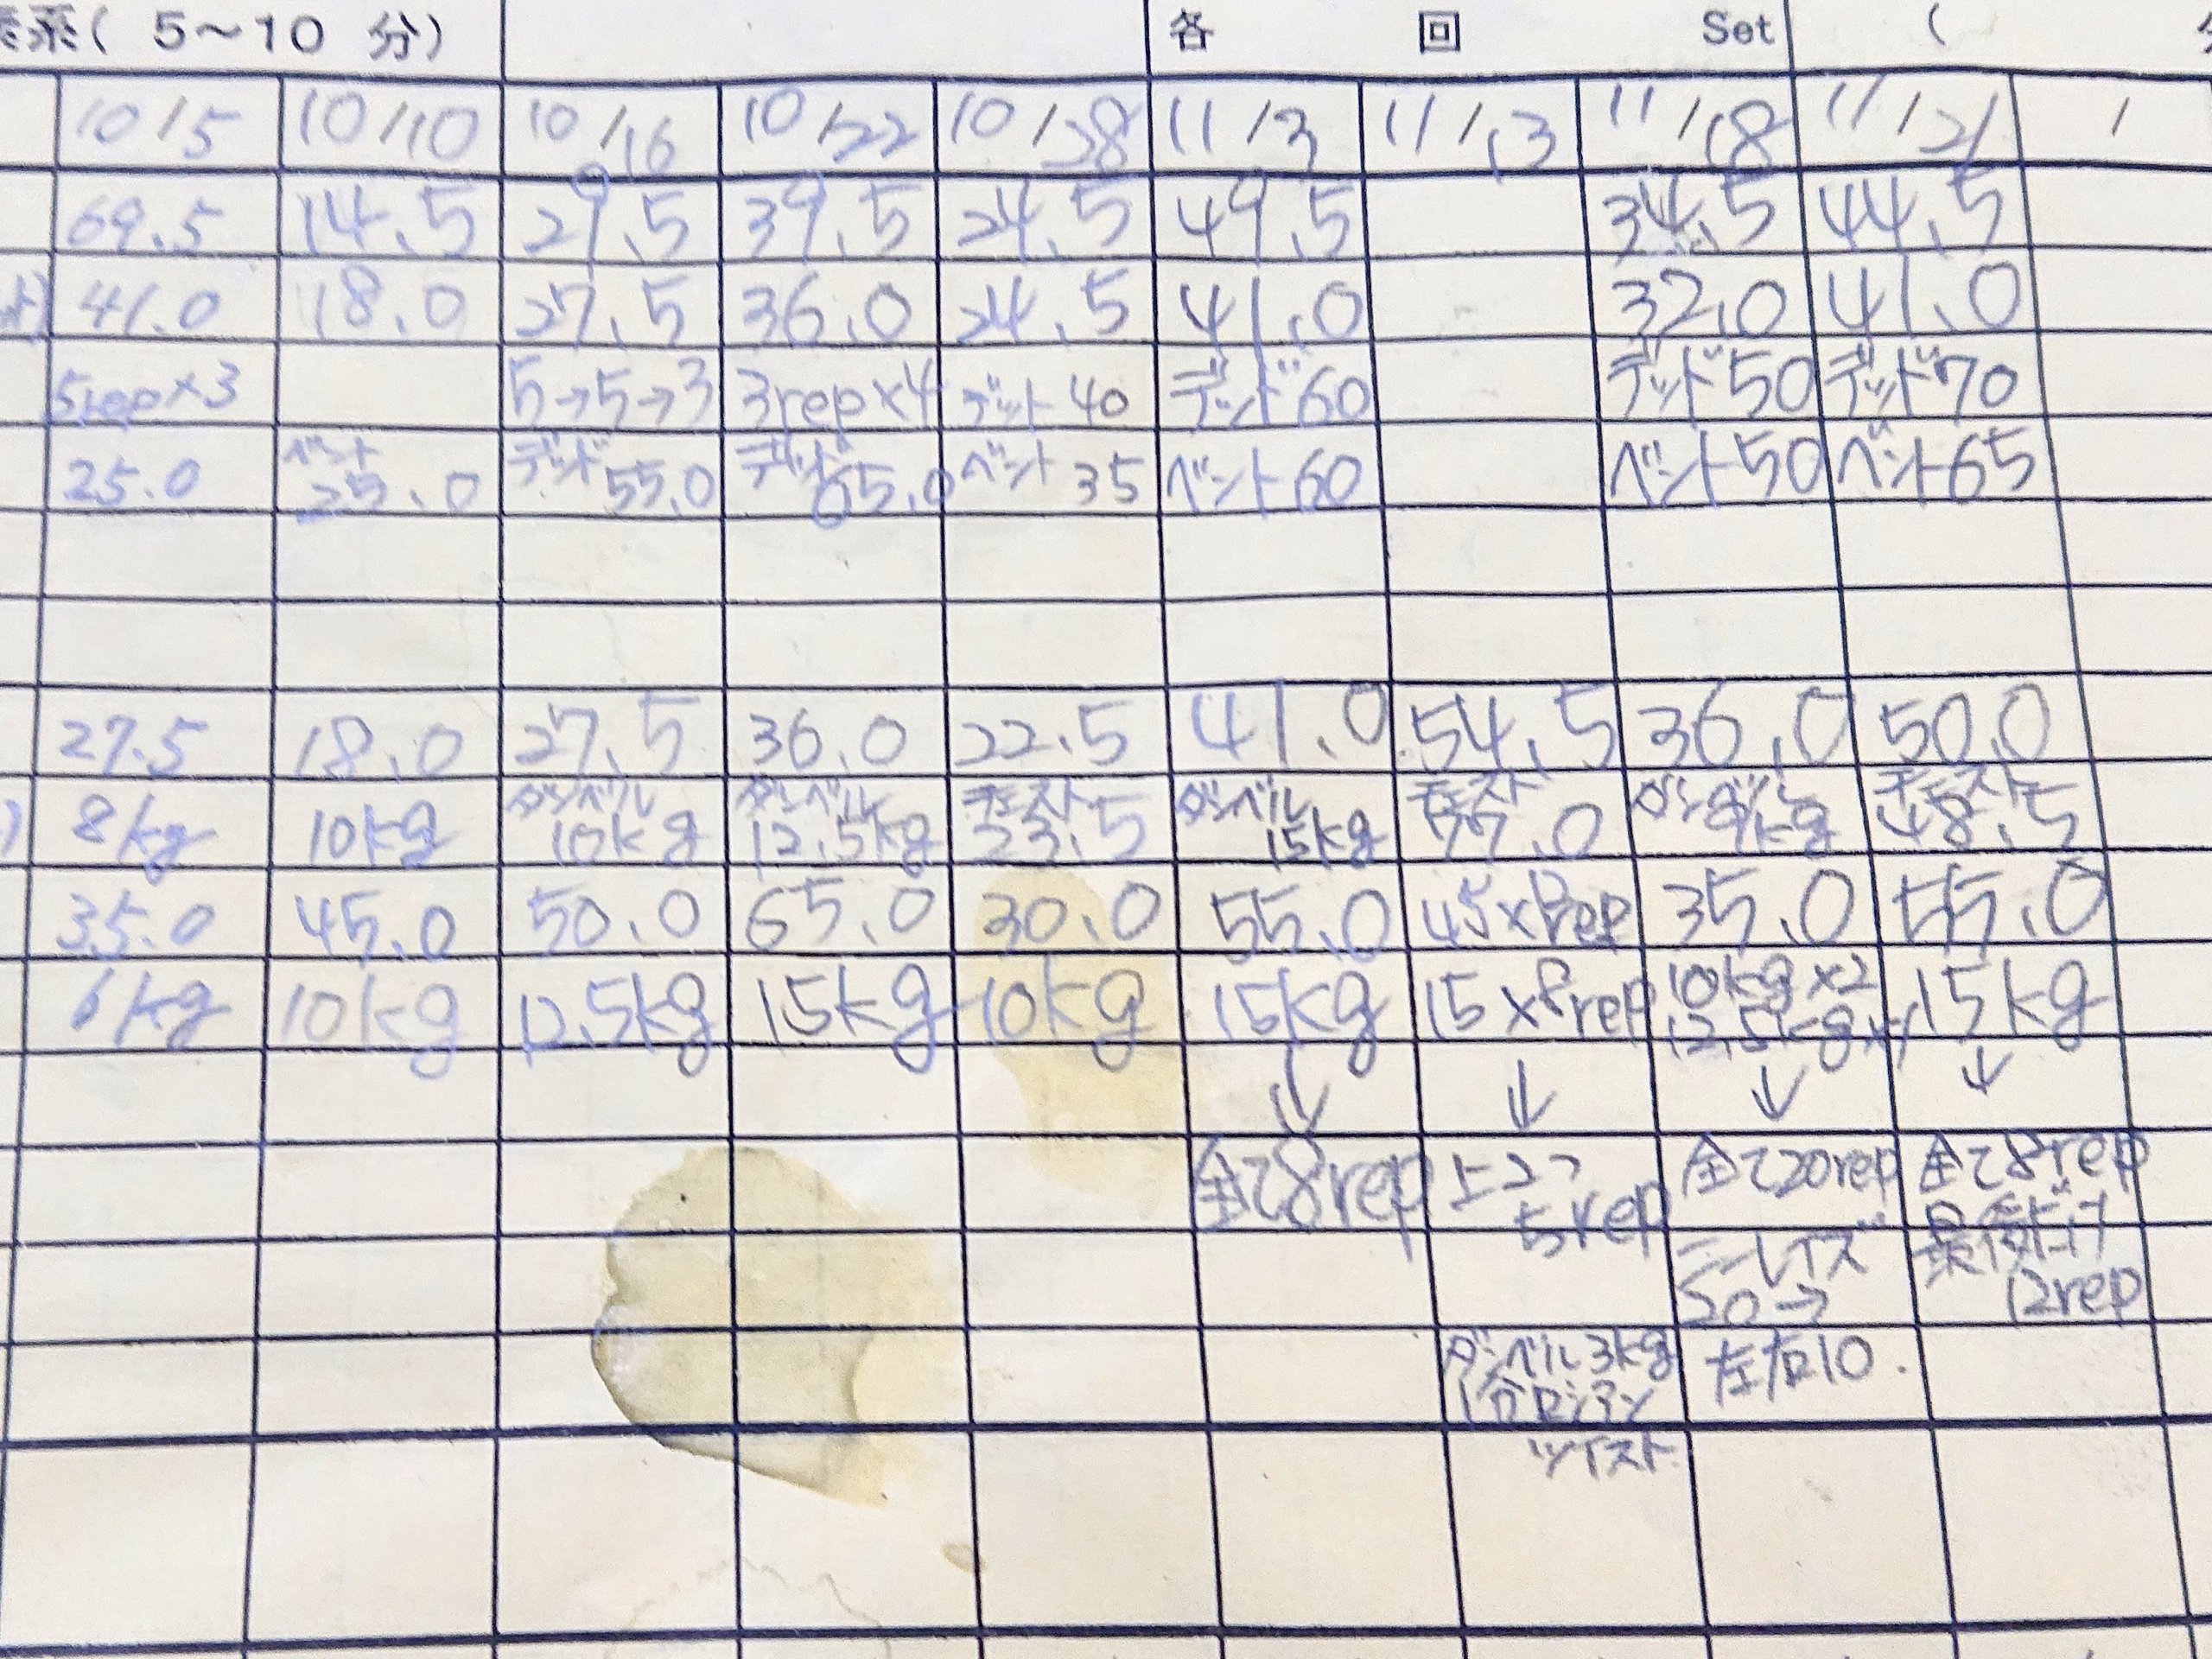 (5~10 分) 各 回 Set (
10/5 10/10 10/16 10/22 10/28 11/3 11/13 11/18 11/21 /
69.5 14.5 29.5 39.5 24.5 49.5 34.5 44.5
41.0 18.0 27.5 36.0 24.5 41.0 32.0 41.0
5rep×3 5→5→3 3rep×4 デット40 デッド60 デッド50 デッド70
25.0 ベント25.0 デッド55.0 デッド65.0 ベント35 ベント60 ベント50 ベント65
27.5 18.0 27.5 36.0 22.5 41.0 54.5 36.0 50.0
8kg 10kg ダンベル10kg ダンベル12.5kg チェスト23.5 ダンベル15kg チェスト77.0 ダンベル チェスト48.5
35.0 45.0 50.0 65.0 30.0 55.0 45×8rep 35.0 55.0
6kg 10kg 12.5kg 15kg 10kg 15kg 15×8rep 10kg×2 15kg
12.5kg×1
↓ ↓ ↓ ↓
全て8rep 上2つ 全て20rep 全て8rep
5rep 最後だけ
レイズ 12rep
20→
ダンベル3kg 左右10
1分ロシアン
ツイスト